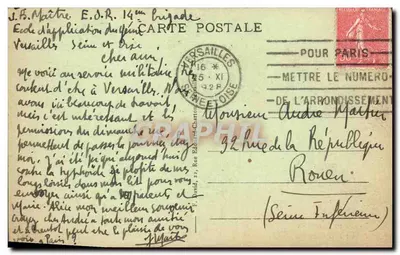 J. H. Maître E.O.R. 14me brigade
Ecole d'application du génie
Versailles Seine et Oise
CARTE POSTALE
Cher ami,
Me voici au service militaire
content d'être à Versailles. Nous
avons ici beaucoup de travail,
mais c'est intéressant et
permission du dimanche
permettent de passer la journée chez
moi. J'ai été piqué aujourd'hui
contre la typhoïde je profite de mes
loisirs dans mon lit pour vous
envoyer ainsi qu'à vos parents et
Marie mon meilleur souvenir
Croyez cher André à toute mon amitié
et à bientôt peut être le plaisir de vous
voir à Paris ?
JMaître
VERSAILLES
16 *
15 . XI
1928
SEINE ET OISE
POUR PARIS
METTRE LE NUMERO
DE L'ARRONDISSEMENT
Monsieur André Martin
92 rue de la République
Rouen
(Seine Inférieure)